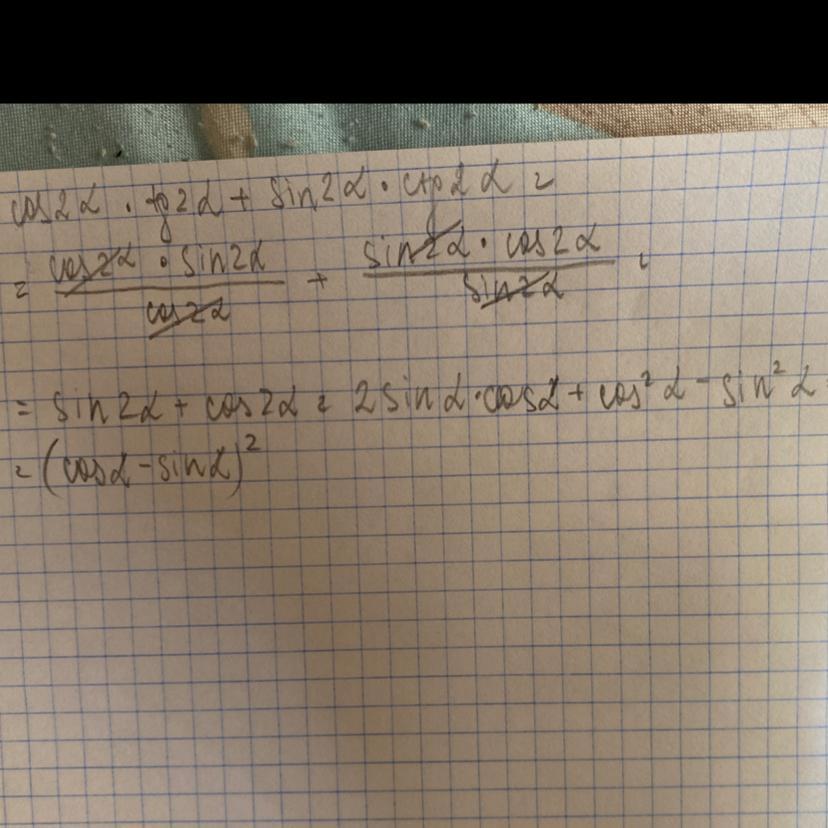 cos2α · tg2α + sin2α · ctg2α =
= cos2α · sin2α / cos2α + sin2α · cos2α / sin2α =
= sin2α + cos2α = 2sinα · cosα + cos²α - sin²α
= (cosα - sinα)²